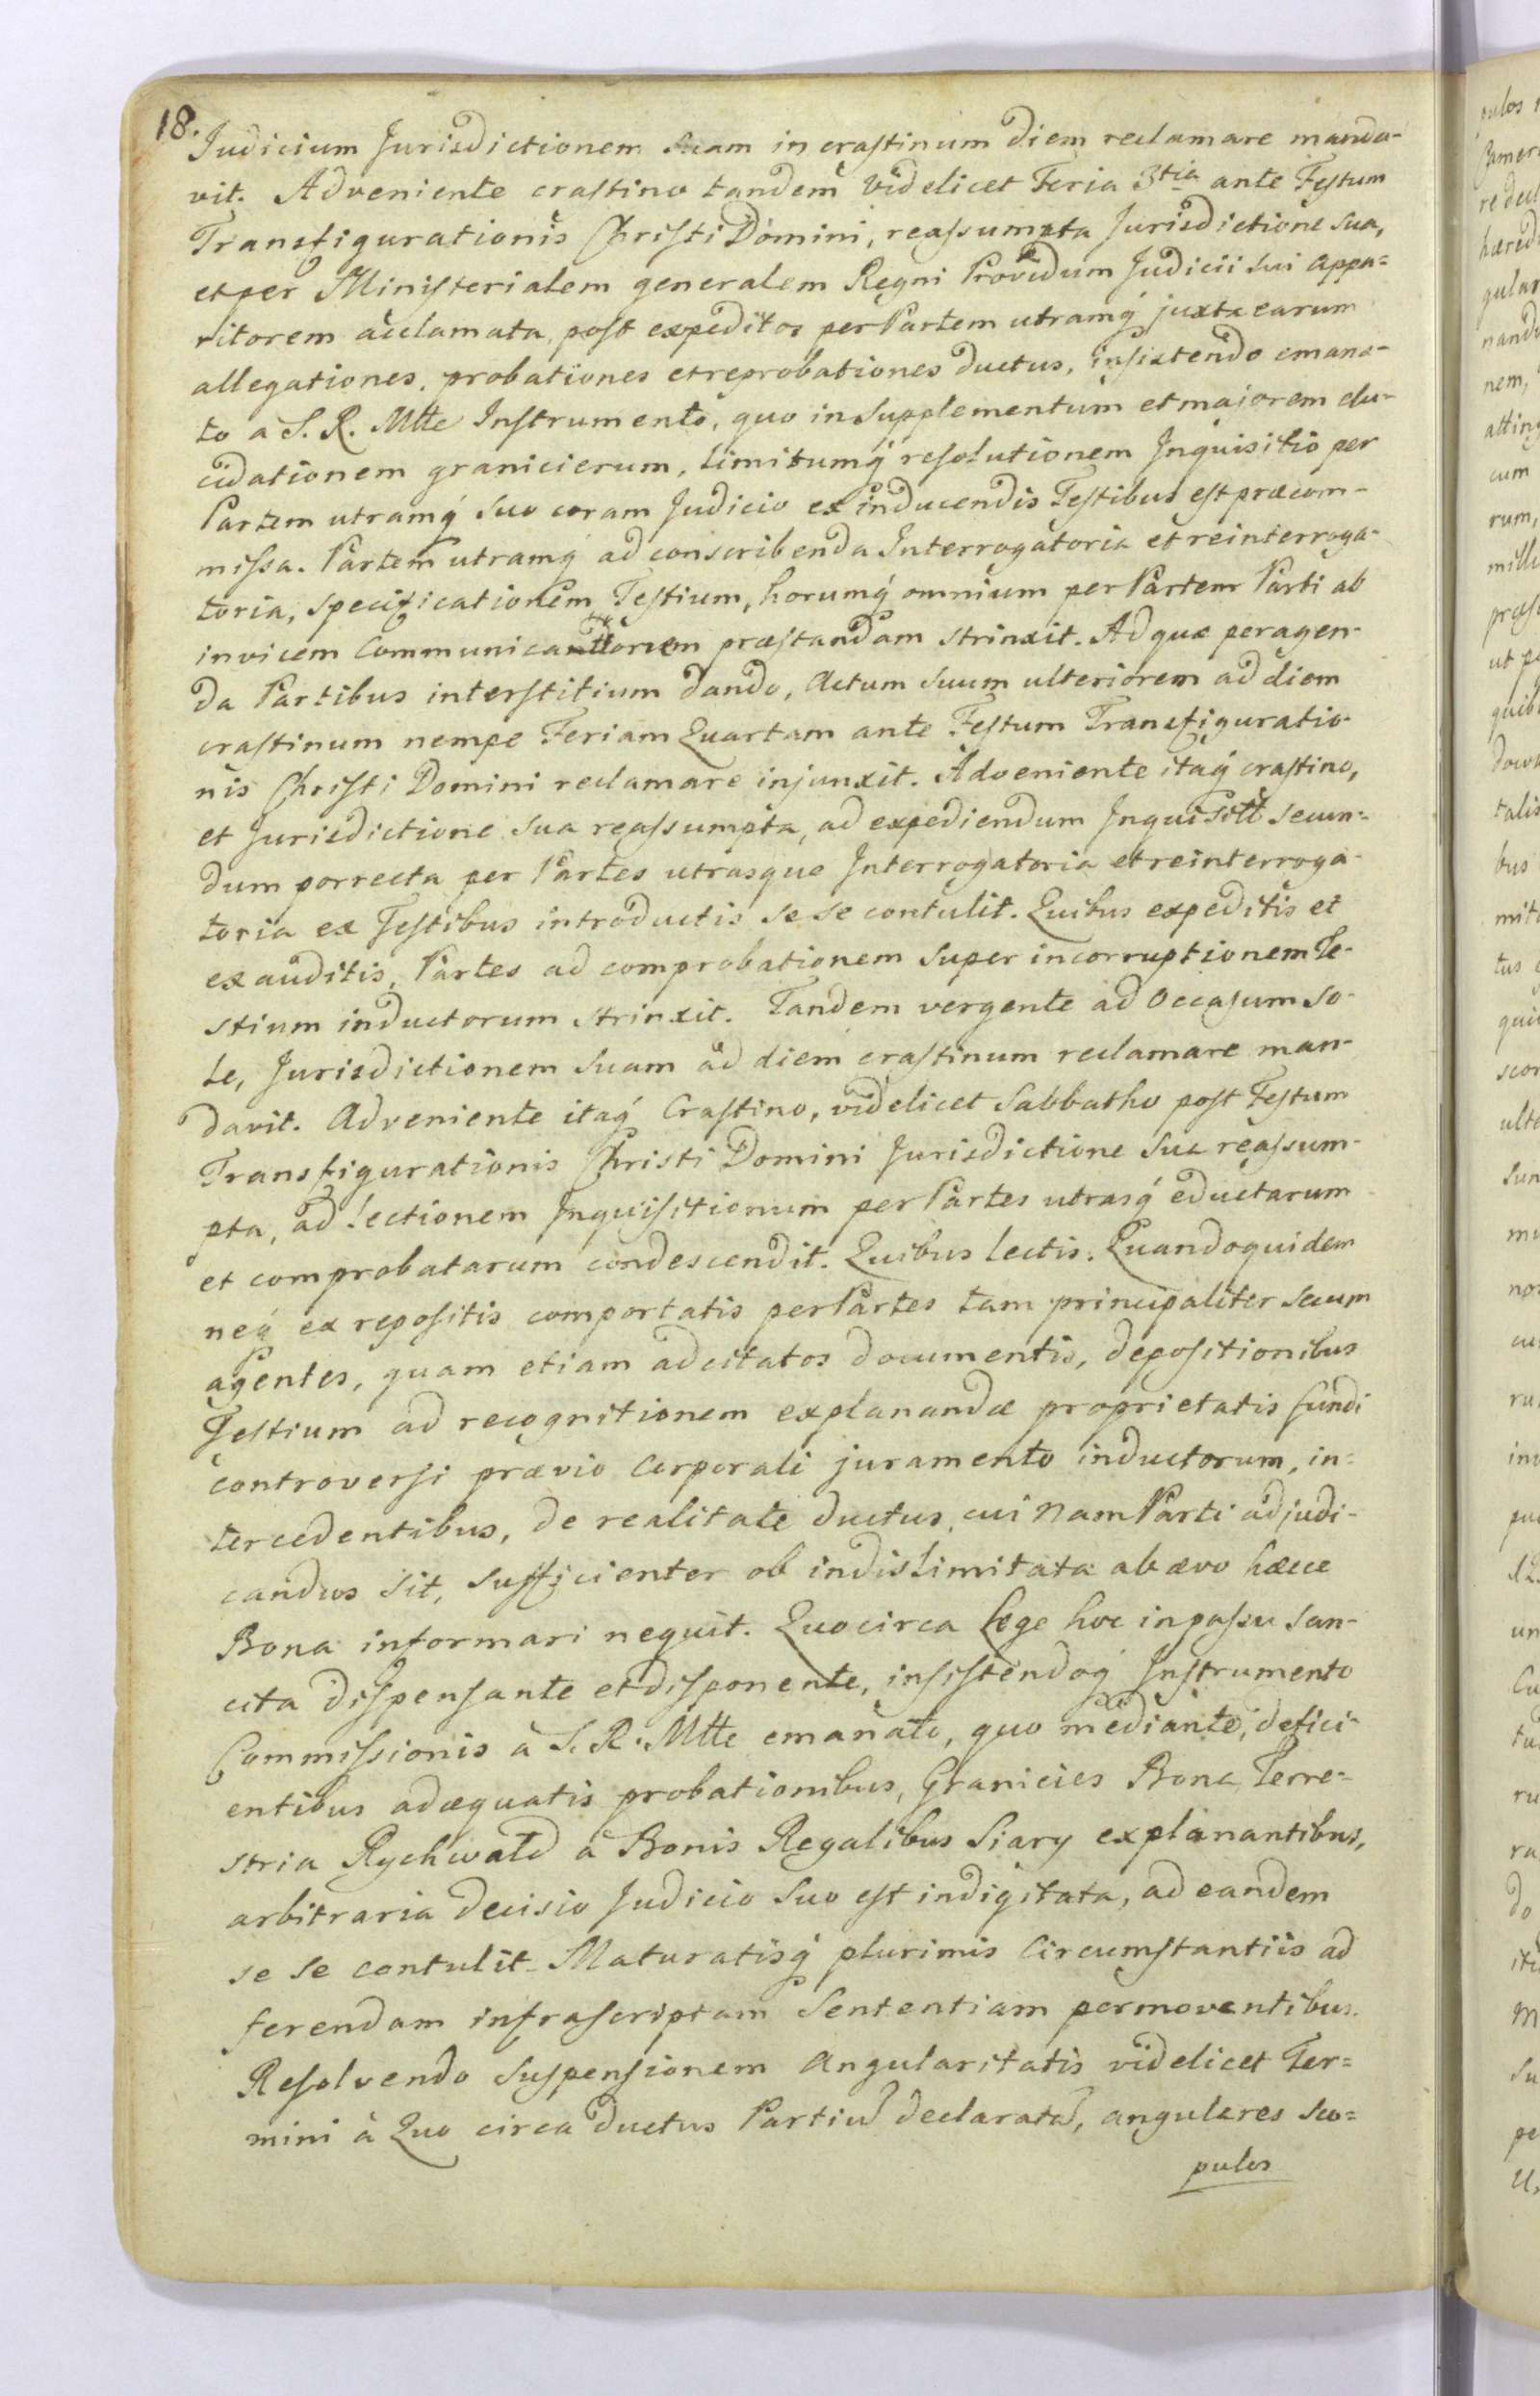 18.
Judicium Jurisdictionem suam in crastinum diem reclamare manda-
vit. Adveniente crastino tandem videlicet Feria 3tia ante Festum
Transfigurationis Christi Domini, reassumpta Jurisdictione sua,
et per Ministerialem generalem Regni Providum Judicii sui appa=
ritorem acclamata, post expeditos per Partem utramq́ juxta earum
allegationes, probationes et reprobationes ductus, insistendo emana-
to a S. R. Mtte Instrumento, quo in supplementum et majorem elu-
cidationem granicierum, limitumq́ resolutionem Inquisitio per
Partem utramq́ suo coram Judicio ex inducendis Testibus est præcom-
missa. Partem utramq́ ad conscribenda Interrogatoria et reinterroga-
toria, specificationem Testium, horumq́ omnium per Partem Parti ab
invicem Communicationem præstandam strinxit. Ad quæ peragen-
da Partibus interstitium dando, Actum suum ulteriorem ad diem
crastinum nempe Feriam Quartam ante Festum Transfiguratio-
nis Christi Domini reclamare injunxit. Adveniente itaq́ crastino,
et Jurisdictione sua reassumpta, ad expediendum Inquisitt secun=
dum porrecta per Partes utrasque Interrogatoria et reinterroga-
toria ex Testibus introductis se se contulit. Quibus expeditis et
exauditis, Partes ad comprobationem super incorruptionem Te-
stium inductorum strinxit. Tandem vergente ad Occasum So-
le, Jurisdictionem suam ad diem crastinum reclamare man-
davit. Adveniente itaq́ Crastino, videlicet Sabbatho post Festum
Transfigurationis Christi Domini Jurisdictione sua reassum-
pta, ad lectionem Inquisitionum per Partes utrasq́ eductarum
et comprobatarum condescendit. Quibus lectis. Quandoquidem
neq́ ex repositis comportatis per Partes tam principaliter secum
agentes, quam etiam adcitatos documentis, depositionibus
Testium ad recognitionem explanandæ proprietatis fundi
controversi prævio corporali juramento inductorum, in=
tercedentibus, de realitate ductus, cui nam Parti adjudi-
candus sit, sufficienter ob indislimitata ab ævo hæcce
Bona informari nequit. Quocirca Lege hoc in passu san-
cita dispensante et disponente, insistendoq́ Instrumento
Commissionis à S. R. Mtte emanato, quo mediante, defici-
entibus adæquatis probationibus, Granicies Bona Terre=
stria Rychwald a Bonis Regalibus Siary explanantibus,
arbitraria decisio Judicio suo est indigitata, ad eandem
se se contulit. Maturatisq́ plurimis Circumstantiis ad
ferendam infrascriptam Sententiam permoventibus.
Resolvendo suspensionem Angularitatis videlicet Ter=
mini à Quo circa ductus Partiū declaratā, angulares sco=
pulos